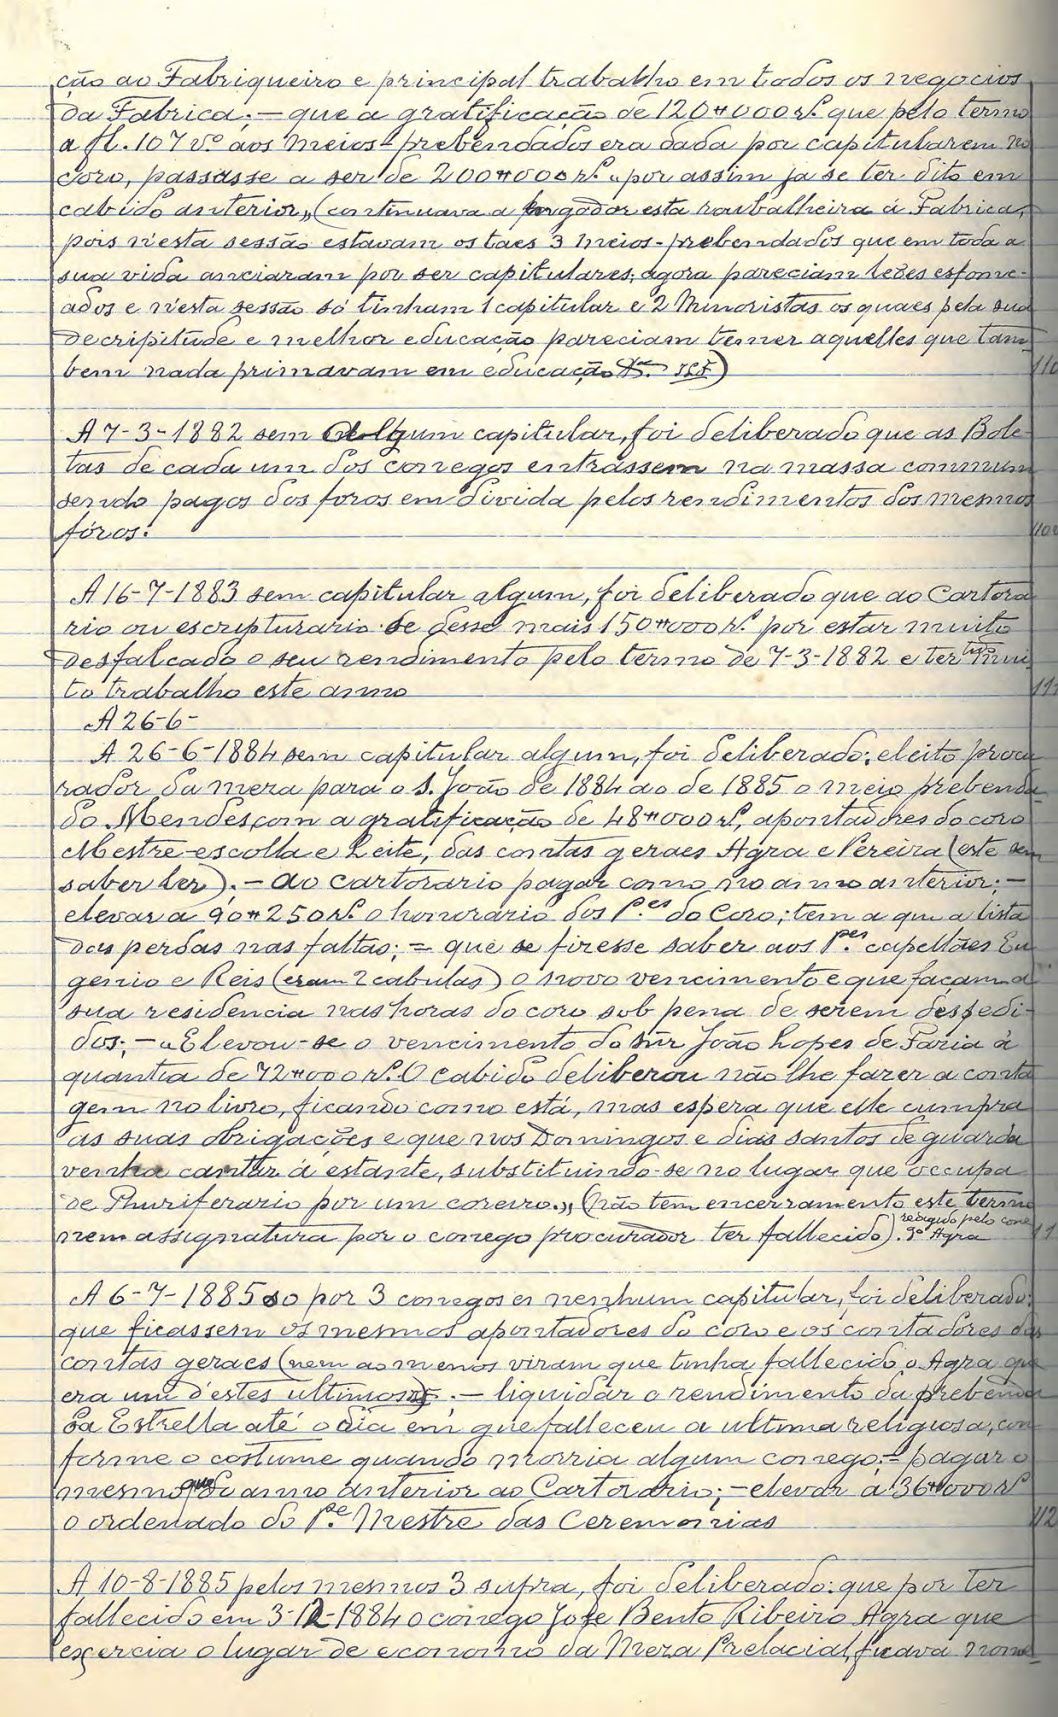 ção ao Fabriqueiro e principal trabalho em todos os negocios
da Fabrica; — que a gratificação de 120#000 rs. que pelo termo
a fl. 107 vº aos meios-prebendados era dada por capitularem no
coro, passasse a ser de 200#000 rs. "por assim ja se ter dito em
cabido anterior,, (continuava a pagodor esta roubalheira á Fabrica,
pois n'esta sessão estavam os taes 3 meios-prebendados que em toda a
sua vida anciaram por ser capitulares; agora pareciam leões esfome-
ados e n'esta sessão só tinham 1 capitular e 2 Minoristas os quaes pela sua
decripitude e melhor educação pareciam temer aquelles que tam
bem nada primavam em educação
A 7-3-1882 sem algum capitular, foi deliberado que as Bole-
tas de cada um dos conegos entrassem na massa commum
sendo pagos dos foros em divida pelos rendimentos dos mesmos
fóros.
A 16-7-1883 sem capitular algum, foi deliberado que ao Cartora
rio ou escripturario se desse mais 150#000 rs. por estar muito
desfalcado o seu rendimento pelo termo de 7-3-1882 e ter tido mui
to trabalho este anno
A 26-6-
A 26-6-1884 sem capitular algum, foi deliberado: eleito procu
rador da meza para o S. João de 1884 ao de 1885 o meio prebenda-
do Mendes, com a gratificação de 48#000 rs, apontadores do coro
Mestre-escolla e Leite, das contas geraes Agra e Pereira (este sem
saber ler). — ao cartorario pagar como no anno anterior; —
elevar a 90#250 rs. o honorario dos P.es do Coro; tem a qui a lista
das perdas nas faltas; — que se fizesse saber aos P.es capellães Eu
genio e Reis (eram 2 cabulas) o novo vencimento e que façam a
sua residencia nas horas do coro sob pena de serem despedi-
dos; — "Elevou-se o vencimento do snr João Lopes de Faria á
quantia de 72#000 rs. O Cabido deliberou não lhe fazer a conta
gem no livro, ficando como está, mas espera que elle cumpra
as suas obrigações e que nos Domingos e dias santos de guarda
venha cantar á estante, substituindo-se no lugar que occupa
de Thuriferario por um coreiro.,, (não tem encerramento este termo
nem assignatura por o conego procurador ter fallecido). redigido pelo cone
go Agra
A 6-7-1885 só por 3 conegos e nenhum capitular, foi deliberado:
que ficassem os mesmos apontadores do coro e os contadores das
contas geraes (nem ao menos viram que tinha fallecido o Agra que
era um d'estes ultimos); — liquidar o rendimento da prebenda
da Estrella até o dia em que falleceu a ultima religiosa, con
forme o costume quando morria algum conego; — pagar o
mesmo que do anno anterior ao Cartorario; — elevar a 36#000 rs
o ordenado do P.e Mestre das Ceremonias
A 10-8-1885 pelos mesmos 3 supra, foi deliberado: que por ter
fallecido em 3-12-1884 o conego José Bento Ribeiro Agra que
exercia o lugar de economo da Meza Prelacial, ficava nome-